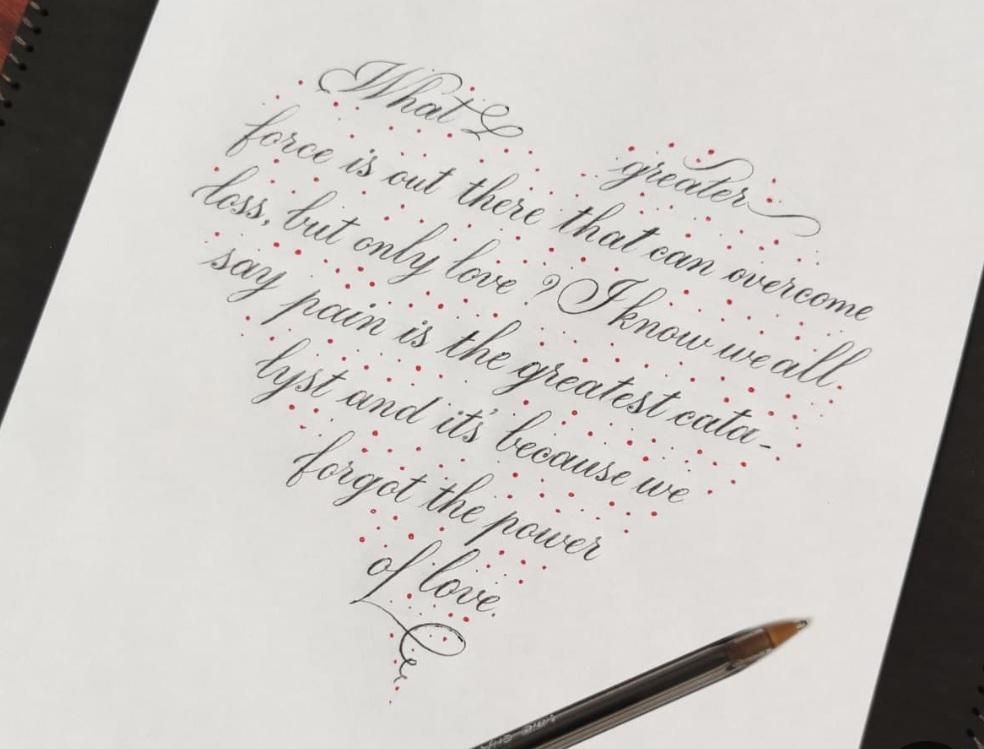 What greater
force is out there that can overcome
loss, but only love? I know we all
say pain is the greatest cata-
lyst and it's because we
forgot the power
of love.